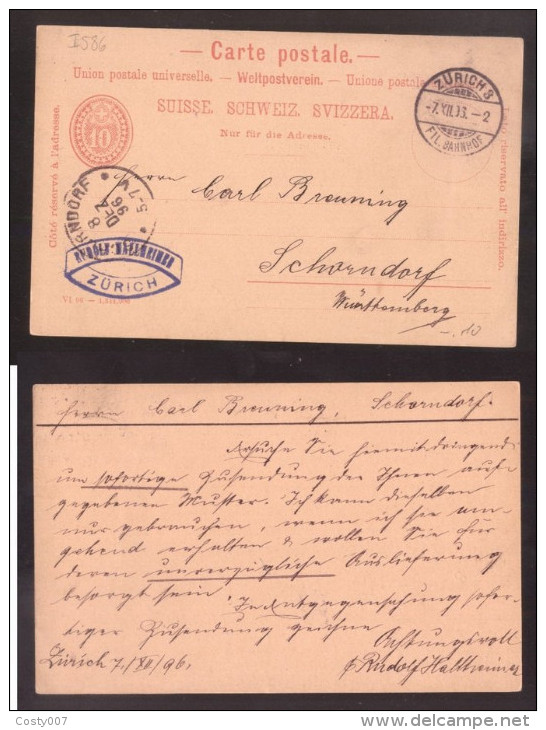 I586
— Carte postale. —
Union postale universelle. — Weltpostverein. — Unione postale
SUISSE. SCHWEIZ. SVIZZERA.
Nur für die Adresse.
Côté réservé à l'adresse.
Lato riservato all' indirizzo.
10
ZÜRICH 8
-7.XII.96.-2
FIL. BAHNHOF
Herrn
Carl Breuning
Schorndorf
Württemberg
-.10
RNDORF
8
DEZ
96
5-7
ZÜRICH
VI 96 —
Herrn Carl Breuning, Schorndorf.
Ersuche Sie hiermit dringend
um sofortige Zusendung der Ihnen auf-
gegebenen Muster. Ich kann dieselben
nur gebrauchen, wenn ich sie um-
gehend erhalte & wollen Sie für
deren unverzügliche Auslieferung
besorgt sein. In Entgegensehung sofor-
tiger Zusendung zeichne
Achtungsvoll
Zürich 7./XII/96.
Rudolf
© Costy007
www.delcampe.net